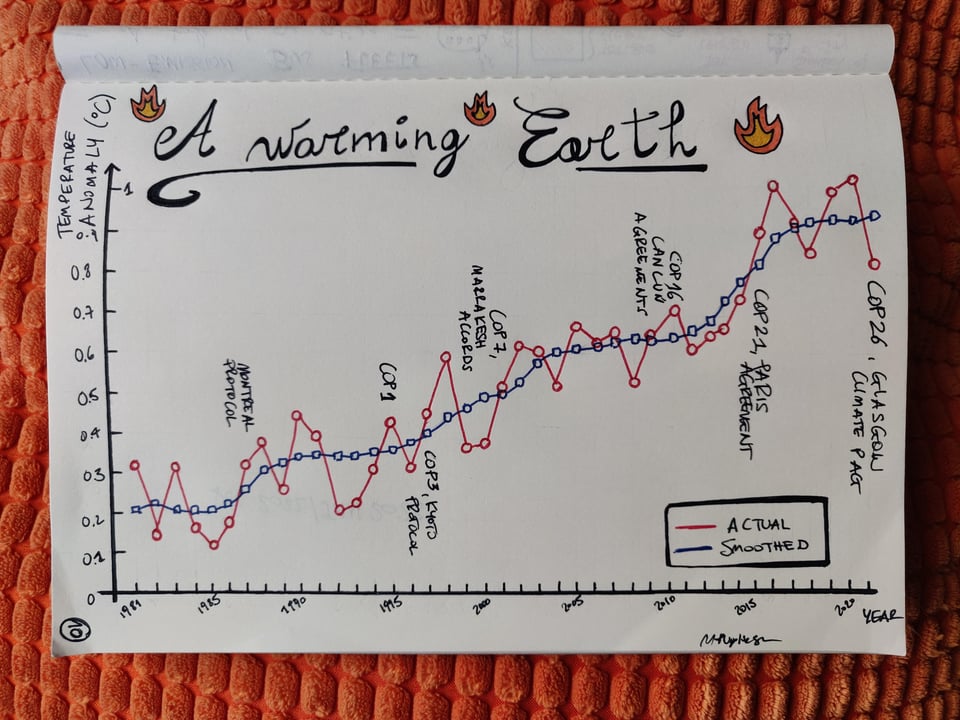 LOW-EMISSION BUS FLEETS
A Warming Earth
TEMPERATURE
ANOMALY (°C)
1
0.9
0.8
0.7
0.6
0.5
0.4
0.3
0.2
0.1
0
MONTREAL
PROTOCOL
COP1
COP3, KYOTO
PROTOCOL
COP7,
MARRAKESH
ACCORDS
COP16
CANCUN
AGREEMENTS
COP21, PARIS
AGREEMENT
COP26, GLASGOW
CLIMATE PACT
ACTUAL
SMOOTHED
1981
1985
1990
1995
2000
2005
2010
2015
2020
YEAR
10